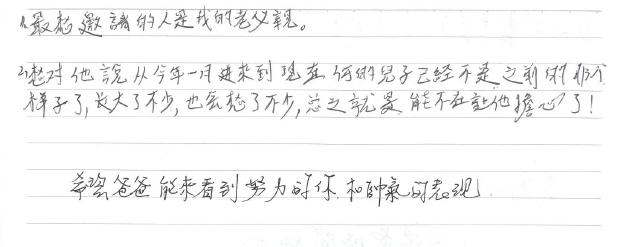 1.最想邀請的人是我的老父親。
2.想对他說从今年一月進來到現在何的兒子已經不是之前的那个
样子了,长大了不少,也乖愁了不少,总之就是能不在讓他擔心了!
希望爸爸能來看到努力的你和帥氣的表現